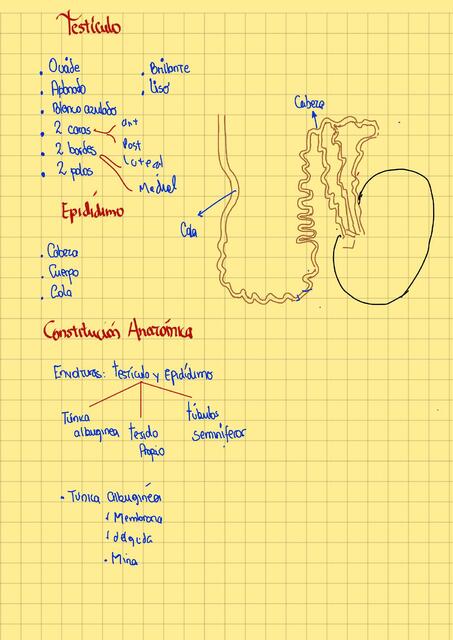 Testículo
. Ovoide
. Aplanado
. Blanco azulado
. 2 caras
. 2 bordes
. 2 polos
. Brillante
. Liso
ant
Post
Lateral
Medial
Cabeza
Cola
Epidídimo
. Cabeza
. Cuerpo
. Cola
Constitución Anatómica
Envolturas: testículo y epidídimo
Túnica
albuginea
tejido
Propio
túbulos
seminiferos
. Túnica albuginea
Membrana
delgada